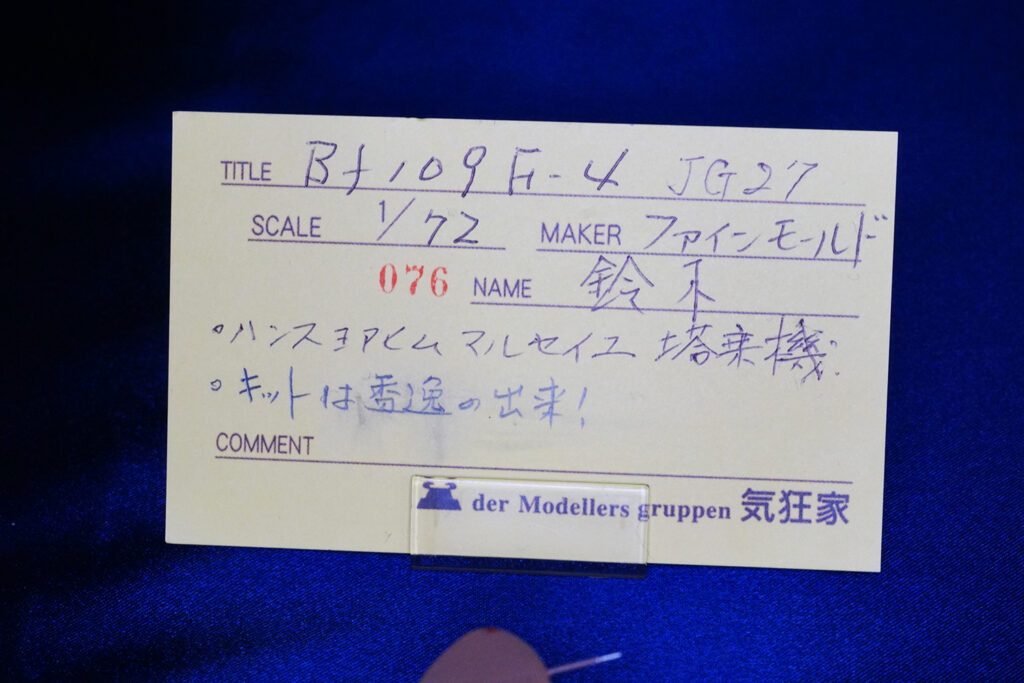 TITLE Bf109 F-4 JG27
SCALE 1/72 MAKER ファインモールド
076 NAME 鈴木
○ハンスヨアヒム マルセイユ 塔乗機
○キットは香逸の出来!
COMMENT
der Modellers gruppen 気狂家